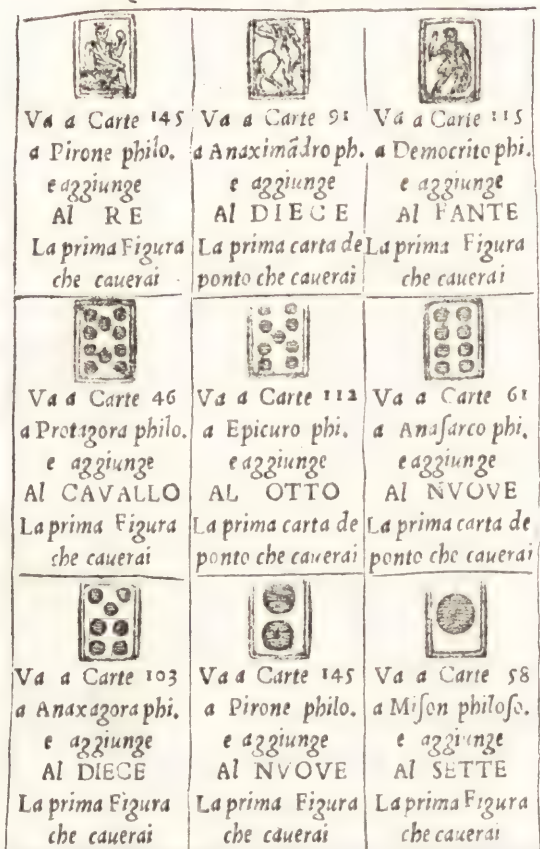 Va a Carte 145
a Pirone philo.
e aggiunge
Al RE
La prima Figura
che cauerai
Va a Carte 91
a Anaximãdro ph.
e aggiunge
Al DIECE
La prima carta de
ponto che cauerai
Va a Carte 115
a Democrito phi.
e aggiunge
Al FANTE
La prima Figura
che cauerai
Va a Carte 46
a Protagora philo.
e aggiunge
Al CAVALLO
La prima Figura
che cauerai
Va a Carte 112
a Epicuro phi.
e aggiunge
AL OTTO
La prima carta de
ponto che cauerai
Va a Carte 61
a Anaſarco phi.
e aggiunge
Al NVOVE
La prima carta de
ponto che cauerai
Va a Carte 103
a Anaxagora phi.
e aggiunge
Al DIECE
La prima Figura
che cauerai
Va a Carte 145
a Pirone philo.
e aggiunge
Al NVOVE
La prima Figura
che cauerai
Va a Carte 58
a Miſon philoſo.
e aggiunge
Al SETTE
La prima Figura
che cauerai